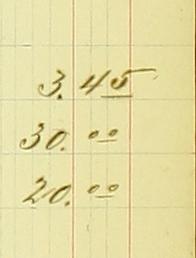 3.45
30.00
20.00